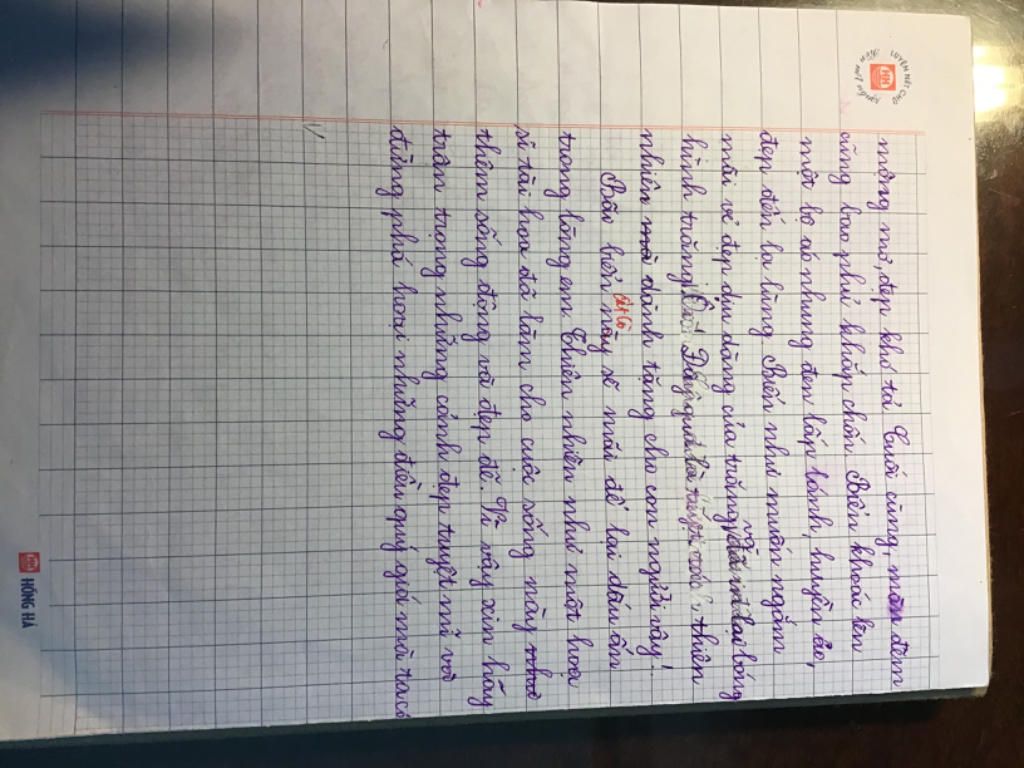 LUYỆN NÉT CHỮ
mộng mơ, đẹp khó tả. Cuối cùng, màn đêm
cũng bao phủ khắp chốn. Biển khoác lên
một bộ áo nhung đen lấp lánh, huyền ảo,
đẹp đến lạ lùng. Biển như muốn ngắm
mãi vẻ đẹp dịu dàng của trăng bóng
hình trăng. Đây quả là thiên
nhiên mà dành tặng cho con người vậy!
Bão biển này sẽ mãi để lại dấu ấn
trong lòng em. Thiên nhiên như một họa
sĩ tài hoa đã làm cho cuộc sống này như
thêm sống động và đẹp đẽ. Vì vậy xin hãy
trân trọng những cảnh đẹp tuyệt mĩ và
đừng phá hoại những điều quý giá mà ta có
HH HỒNG HÀ